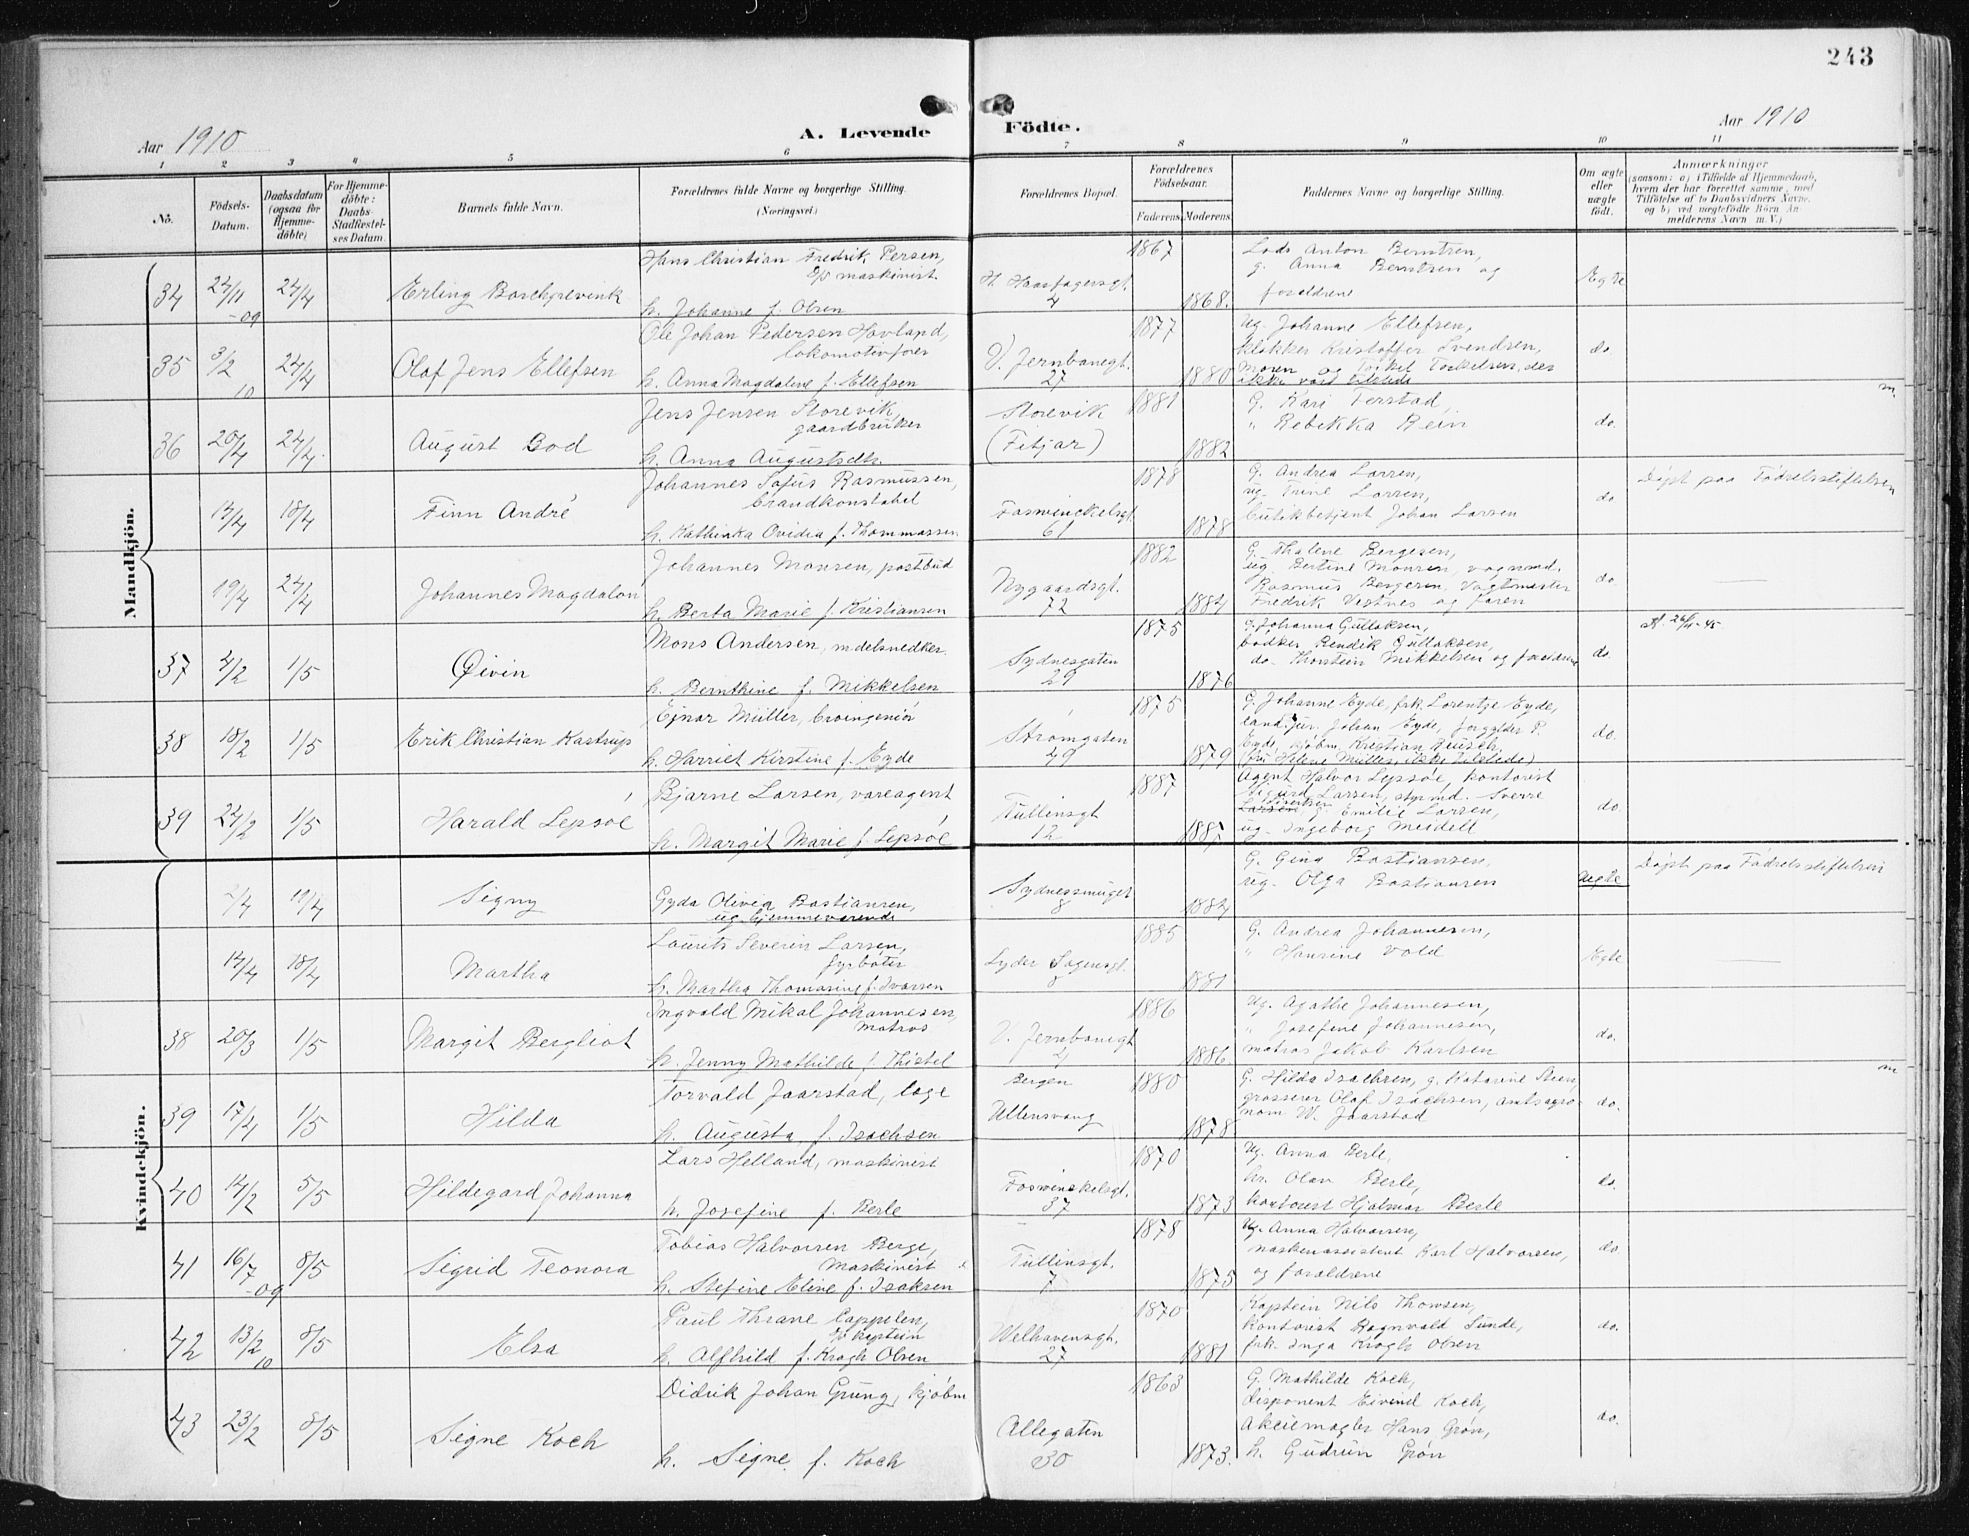 243
Aar 1910
A. Levende
Födte.
Aar 1910
1 2 3 4 5 6 7 8 9 10 11
No.
Födsels-
Datum.
Daabsdatum
(ogsaa for
Hjemme-
döbte)
For Hjemme-
döbte:
Daabs-
Stadfæstel-
ses Datum.
Barnets fulde Navn.
Forældrenes fulde Navne og borgerlige Stilling.
(Næringsvei.)
Forældrenes Bopæl.
Forældrenes
Födselsaar.
Faderens. Moderens.
Faddernes Navne og borgerlige Stilling.
Om ægte
eller
uægte
födt.
Anmærkninger
(saasom: a) i Tilfælde af Hjemmedaab,
hvem der har forrettet samme, med
Tilföielse af to Daabsvidners Navne.
og b) ved uægtefödte Börn An-
melderens Navn m. V.)
Mandkjön.
34 24/11 -09 24/4 Erling Borchgrevink
Hans Christian Fredrik Persen,
d/s maskinist
h. Johanne f. Olsen
H. Haarfagersgt.
4
1867 1868.
Lods Anton Berntsen,
g. Anna Berntsen og
forældrene
Egte
35 3/2 10 24/4 Olaf Jens Ellefsen
Ole Johan Pedersen Hovland,
lokomotivfører
h. Anna Magdalene f. Ellefsen
V. Jernbanegt.
27
1877 1880
Ug. Johanne Ellefsen,
klokker Kristoffer Svendsen,
Moren og Torkel Torkelsen, der
ikke vare tilstede
do.
m.
36 20/4 24/4. August Bod
Jens Jensen Storevik,
gaardbruker
h. Anna Augustsdtr.
Storevik
(Fitjar)
1881 1882
G. Kari Terstad,
" Rebekka Rein
do.
14/4 18/4 Finn André
Johannes Sofus Rasmussen,
brandkonstabel
h. Kathinka Ovidia f. Thommassen
Foswinckelsgt.
61
1878 1878
G. Andrea Larsen,
ug. Trine Larsen,
butikbetjent Johan Larsen
do
Døpt paa Fødselsstiftelsen
19/4 24/4 Johannes Magdalon
Johannes Monsen, postbud
h. Berta Marie f. Kristiansen
Nygaardsgt.
72
1882 1884
G. Thalene Bergesen,
ug. Bertine Monsen, vognmd.
Rasmus Bergesen, Vagtmester
Fredrik Vestnes og faren
do.
37 4/2 1/5 Øivin
Mons Andersen, mdelsnedker.
h. Bernthine f. Mikkelsen
Sydnesgaten
29
1875 1876
G. Johanna Gullaksen,
bødker Bendik Gullaksen,
do. Thorstein Mikkelsen og forældrene
do.
38 18/2 1/5 Erik Christian Kastrup
Ejnar Müller, broingeniør
h. Harriet Kirstine f. Eyde
Strømgaten
49
1875 1879
G. Johanne Eyde, frk. Lorentze Eyde,
cand. jur. Johan Eyde, P.
Eyde, kjøbm. Kristian Reusch.
(fru Helene Müller, ikke tilstede)
do.
39 24/2 1/5 Harald Lepsøe
Bjarne Larsen, vareagent
h. Margit Marie f. Lepsøe
Tullinsgt
12
1887 1887
Agent Halvor Lepsøe, kontorist
Sigurd Larsen, styrmd. Sverre
Larsen g. Emilie Larsen,
ug. Ingeborg Meidell
do.
Kvindekjön.
2/4 19/4 Signy
Gyda Olivia Bastiansen,
ug. hjemmeværende
Sydnessmuget
8
1884
G. Gina Bastiansen,
ug. Olga Bastiansen
Uegte
Døpt paa Fødselsstiftelsen
14/4 18/4 Martha
Laurits Severin Larsen,
fyrbøter
h. Martha Thomasine f. Ivarsen
Lyder Sagensgt.
8
1885 1881
G. Andrea Johannesen,
" Hansine Vold
Egte
38 20/3 1/5 Margit Bergliot
Ingvald Mikal Johannesen,
Matros
h. Jenny Mathilde f. Thistel
V. Jernbanegt
1886 1886.
Ug. Agathe Johannesen,
" Josefine Johannesen,
matros Jakob Karlsen
do.
m
39 17/4 1/5 Hilda
Torvald Jaarstad, læge
h. Augusta f. Isachsen
Bergen
Ullensvang
1880 1878
G. Hilda Isachsen, g. Katarine Steen
grosserer Olaf Isachsen, amtsagro-
nom W. Jaarstad
do.
40 14/2 5/5 Hildegard Johanna
Lars Helland, maskinist
h. Josefine f. Berle
Foswinckelsgt.
37
1870 1873
Ug. Anna Berle,
hr. Olav Berle,
kontorist Hjalmar Berle
do.
41 16/7 -09 8/5 Sigrid Teonora
Tobias Halvorsen Berge,
Maskinist
h. Stefine Eline f. Isaksen
Tullinsgt.
7
1878 1875
Ug. Anna Halvorsen,
maskinassistent Karl Halvorsen,
og forældrene
do
42 13/2 10 8/5 Elsa
Paul Thrane Cappelen,
d/s kaptein
h. Alfhild f. Krogh Olsen
Welhavensgt.
27
1870 1881
Kaptein Nils Thomsen,
kontorist Ragnvald Sunde,
frk. Inga Krogh Olsen
do.
43 23/2 8/5 Signe Koch
Didrik Johan Grung, kjøbm
h. Signe f. Koch
Allegaten
30
1863 1873.
G. Mathilde Koch,
disponent Eivind Koch,
Aktiemægler Hans Grøn,
h. Gudrun Grøn
do.